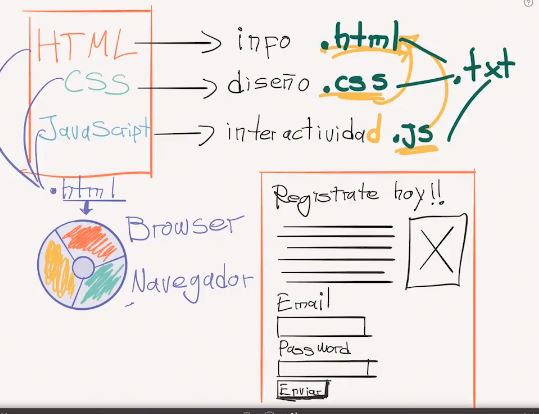 HTML → info .html
CSS → diseño .css .txt
JavaScript → interactividad .js
.html
Browser
Navegador
Registrate hoy!!
Email
Password
Enviar